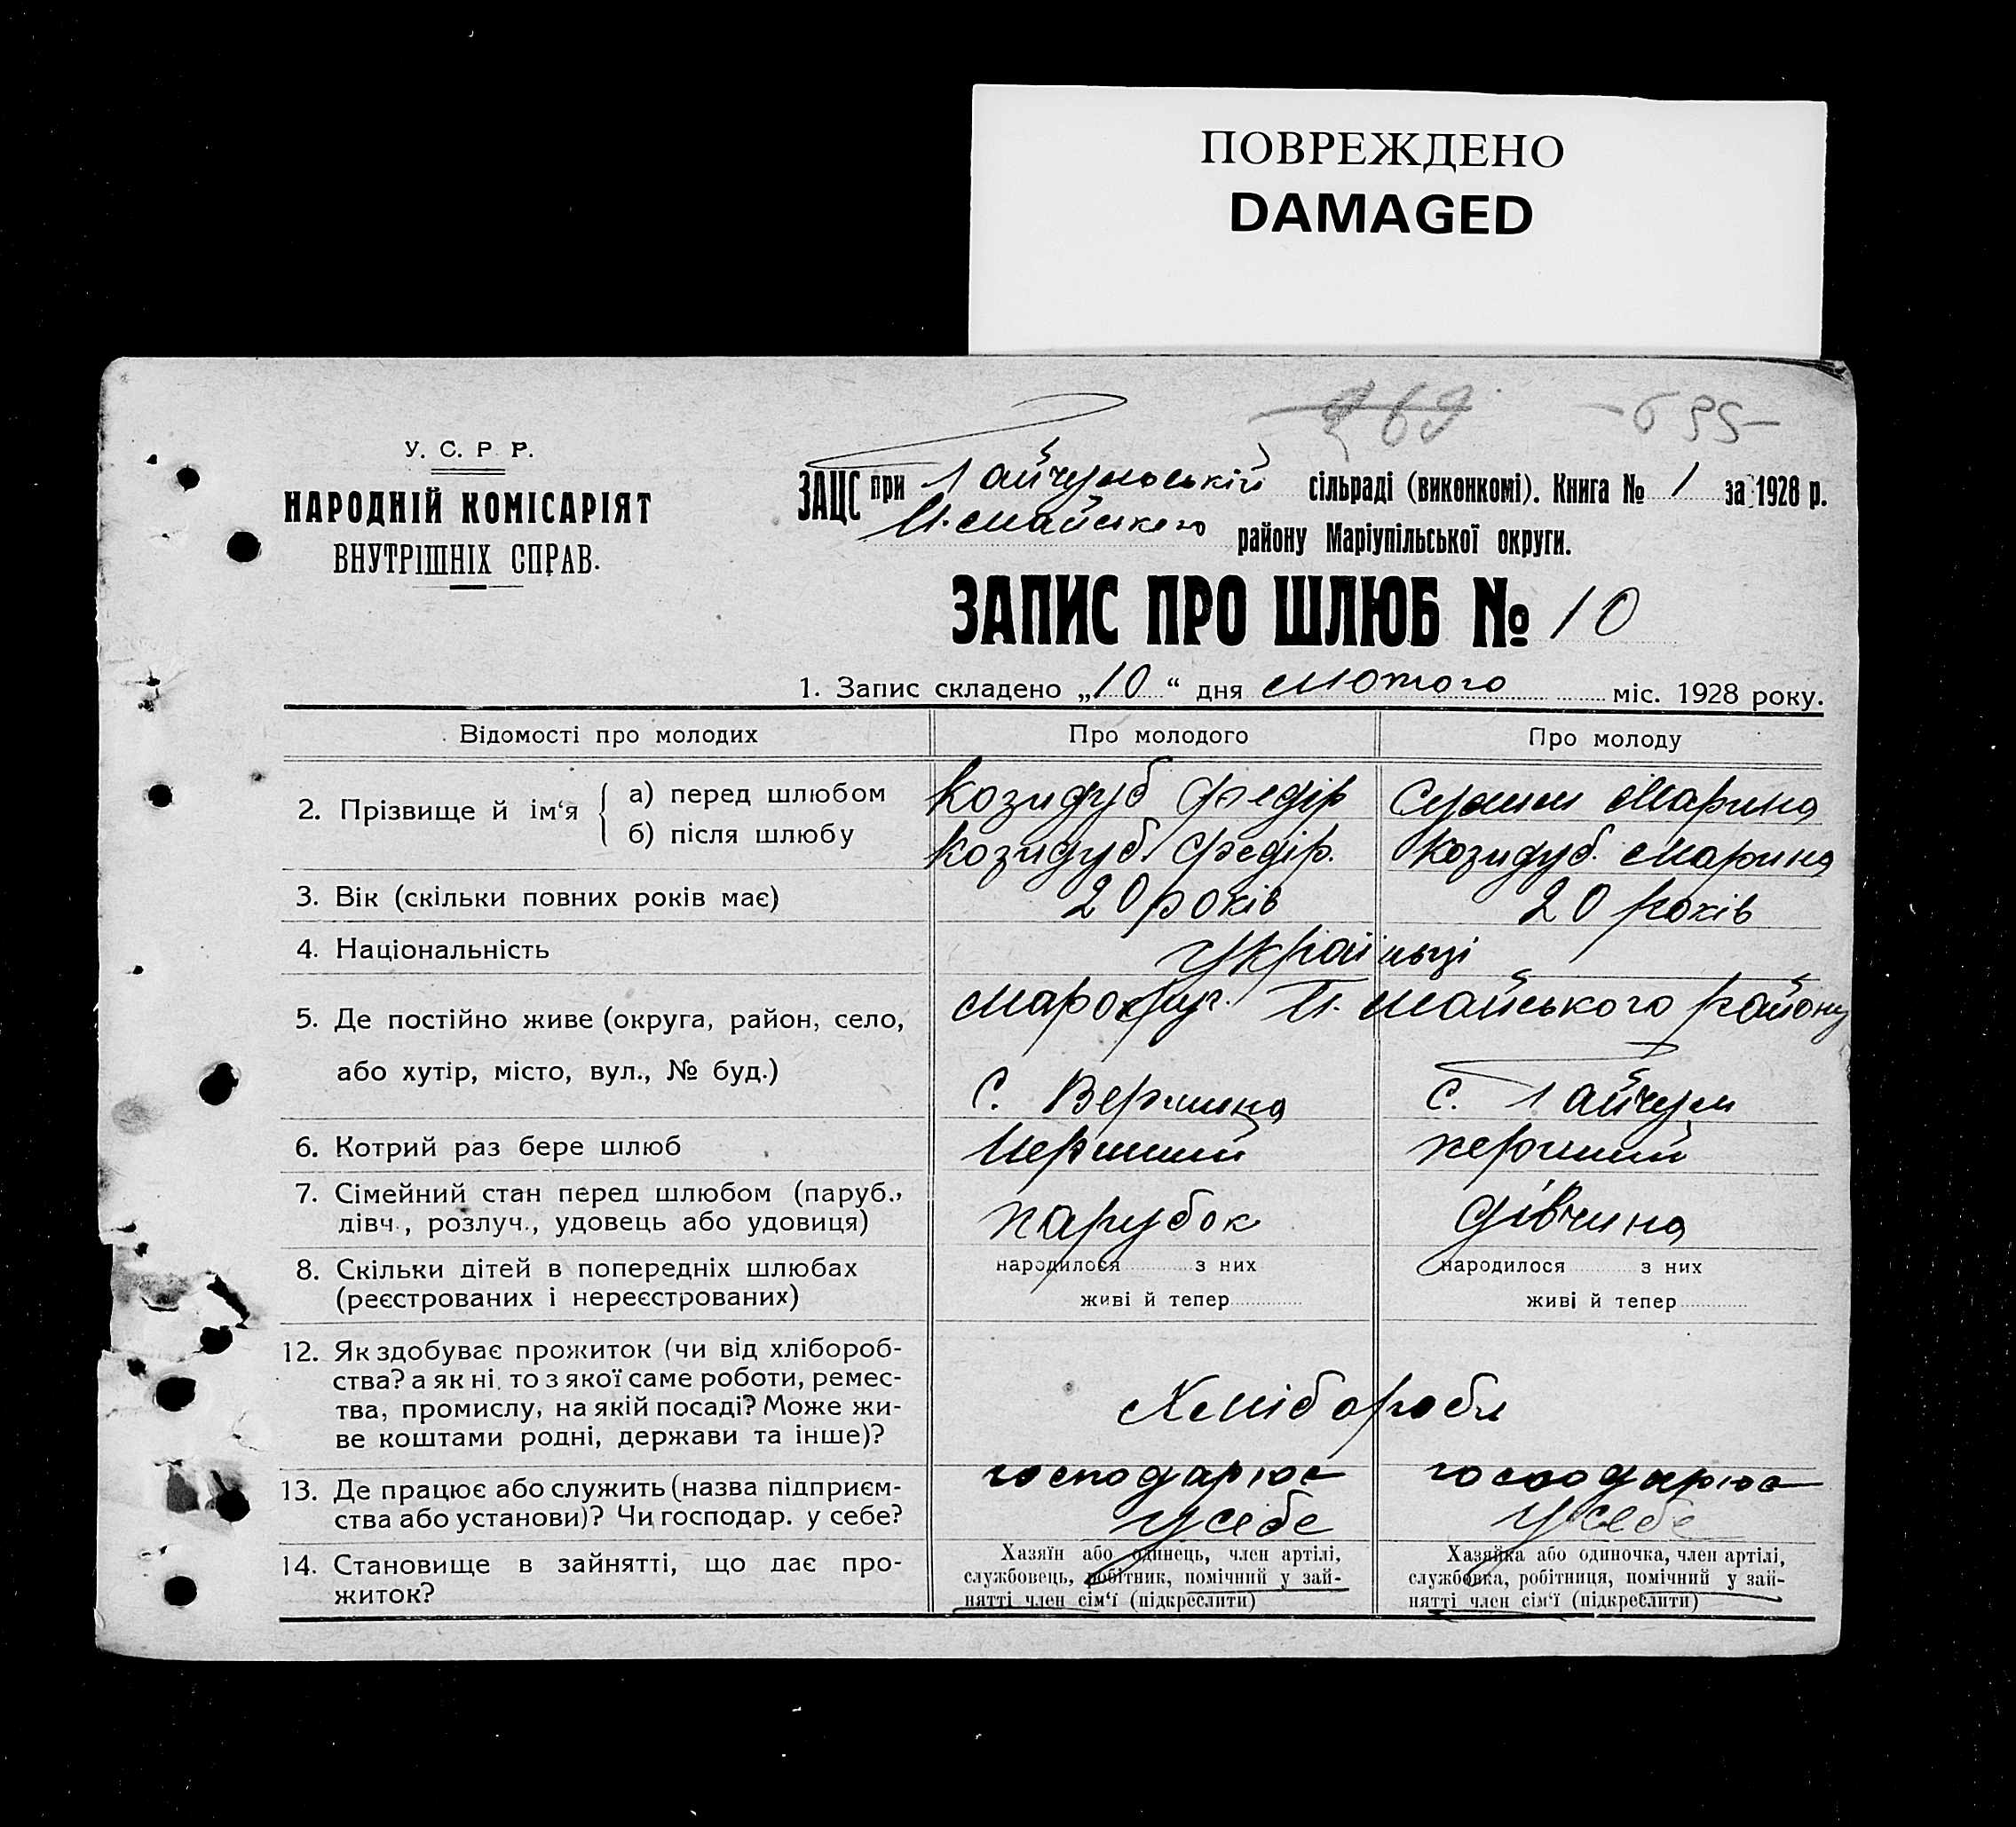 ПОВРЕЖДЕНО
DAMAGED
769 - 695 -
У. С. Р. Р.
НАРОДНІЙ КОМІСАРІЯТ
ВНУТРІШНІХ СПРАВ.
ЗАЦС при Гайчульській сільраді (виконкомі). Книга № 1 за 1928 р.
П. майського району Маріупільської округи.
ЗАПИС ПРО ШЛЮБ № 10
1. Запис складено „10“ дня лютого міс. 1928 року.
Відомості про молодих Про молодого Про молоду
2. Прізвище й ім‘я
а) перед шлюбом Козидуб Федір Марина
б) після шлюбу Козидуб. Федір. Козидуб. Марина
3. Вік (скільки повних років має) 20 років 20 років
4. Національність Українці
5. Де постійно живе (округа, район, село, П. Майського району
або хутір, місто, вул., № буд.) С. Вершина С. Гайчул
6. Котрий раз бере шлюб Перший перший
7. Сімейний стан перед шлюбом (паруб., парубок дівчина
дівч., розлуч., удовець або удовиця)
8. Скільки дітей в попередніх шлюбах народилося з них народилося з них
(реєстрованих і нереєстрованих) живі й тепер живі й тепер
12. Як здобуває прожиток (чи від хлібороб-
ства? а як ні, то з якої саме роботи, ремес-
тва, промислу, на якій посаді? Може жи- Хлібороби
ве коштами родні, держави та інше)?
13. Де працює або служить (назва підприєм- господарює господарює
ства або установи)? Чи господар. у себе? у себе у себе
14. Становище в зайнятті, що дає про-
житок?
Хазяїн або одинець, член артілі,
службовець, робітник, помічний у зай-
нятті член сім‘ї (підкреслити)
Хазяйка або одиночка, член артілі,
службовка, робітниця, помічний у зай-
нятті член сім‘ї (підкреслити)